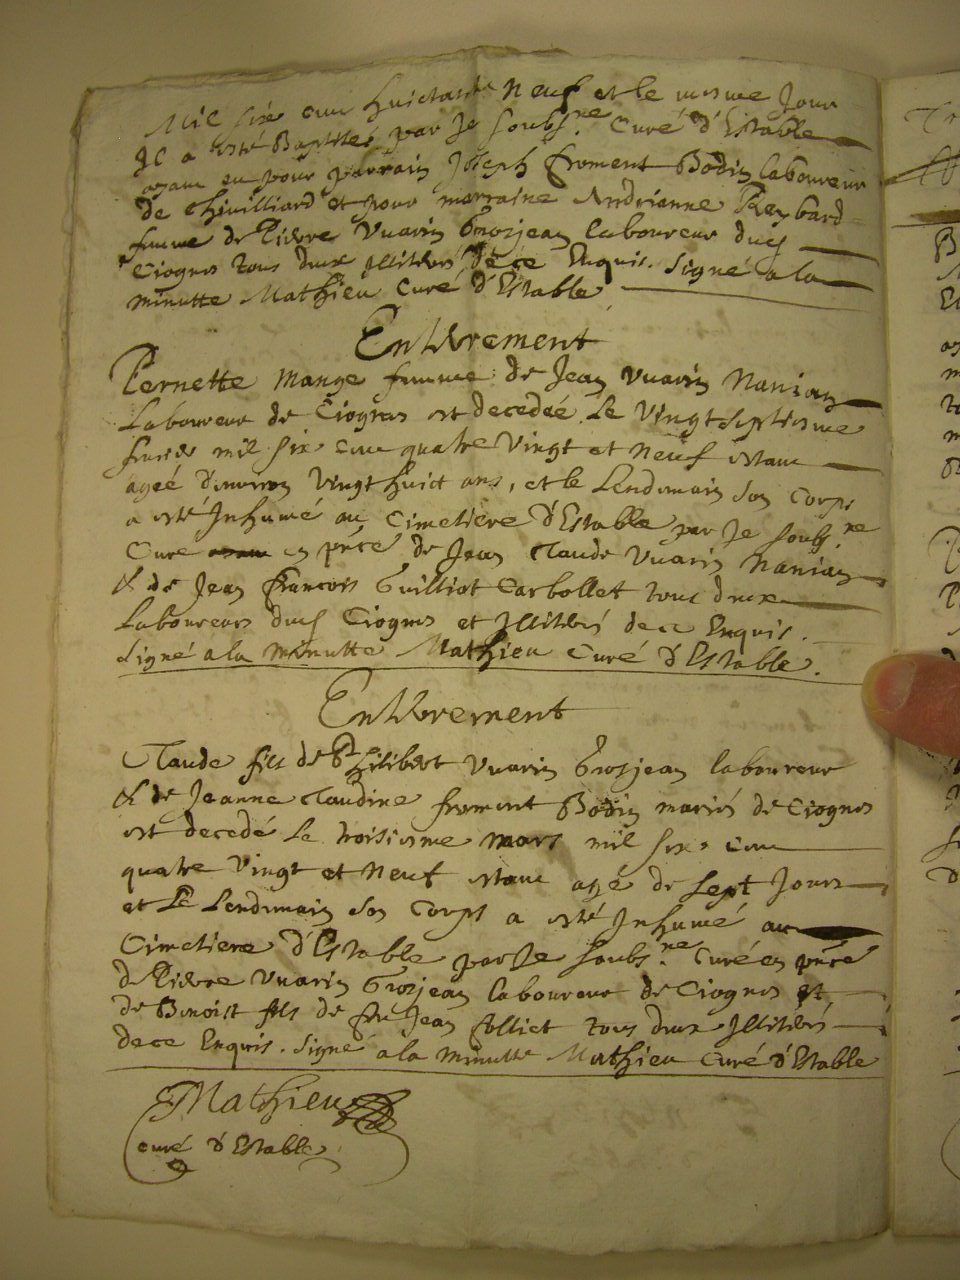 Mil six cent huictante Neuf et le mesme Jour
Il a esté Baptisé par Je soubs.ne Curé d'Estable
ayant eu pour parrain Joseph froment Bodin laboureur
de Chivilliard et pour marraine Andrianne Reybard
femme de Pierre Vuarin Grosjean laboureur dud
Ciognes tous deux Illiterés de ce Enquis. Signé a la
minutte Mathieu Curé d'Estable
Enterrement
Pernette Mange femme de Jean Vuarin Nanian
Laboureur de Ciognes est decedée le Vingtseptiesme
feurier mil six cent quatre Vingt et Neuf estant
agéé d'environ Vingt huict ans, et le Lendemain son Corps
a esté Inhumé au Cimetiere d'Estable par Je soubs.ne
Curé en p̃nce de Jean Claude Vuarin Nanian
& de Jean francois Guilliot Carbollet tous deux
Laboureurs dud Ciognes et Illiterés de ce Enquis.
Signé a la Minutte Mathieu Curé d'Estable.
Enterrement
Claude fils de Philibert Vuarin Grosjean laboureur
& de Jeanne Claudine froment Bodin mariés de Ciognes
est decedé Le troisiesme mars mil six cent
quatre Vingt et Neuf estant agé de sept Jours
et Le Lendemain son Corps a esté Inhumé au
Cimetiere d'Estable par Je soubs.ne Curé en p̃nce
de Pierre Vuarin Grosjean laboureur de Ciognes et
de Benoist fils de feu Jean folliet tous deux Illiterés
de ce Enquis. Signé a la Minutte Mathieu Curé d'Estable
Mathieu
curé d'Estable